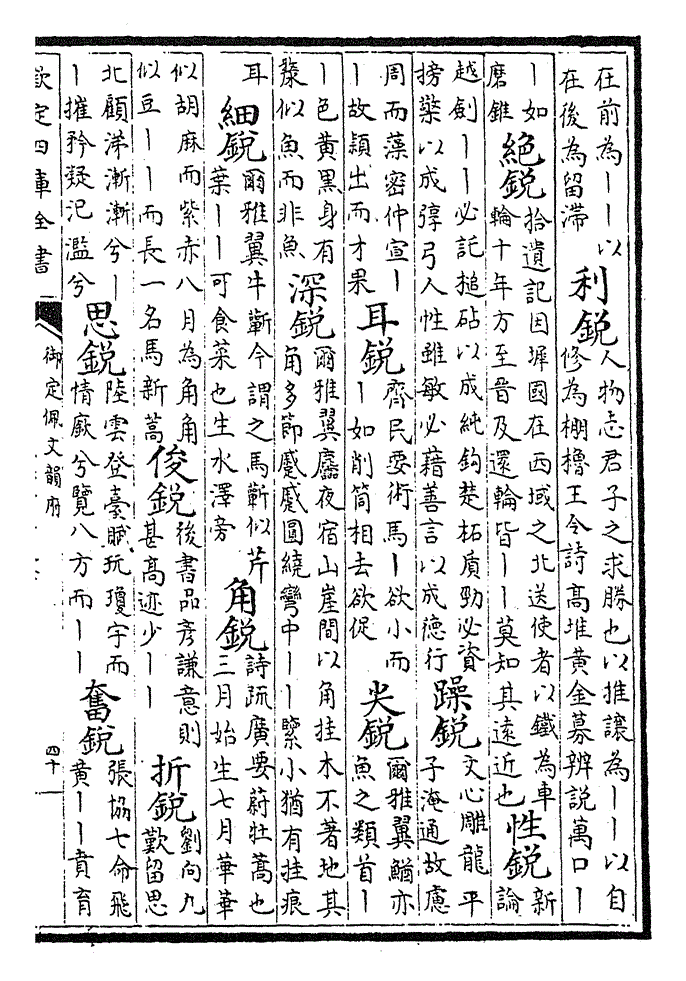 在前為丨丨以
在後為留滯
利鋭
人物志君子之求勝也以推讓為丨丨以自
修為棚櫓王令詩髙堆黄金募辨説萬口丨
丨如
磨錐
絶鋭
拾遺記因墀國在西域之北送使者以鐵為車
輪十年方至晉及還輪皆丨丨莫知其遠近也
性鋭
新
論
越劍丨丨必託搥砧以成純鈎楚柘質勁必資
搒檠以成弴弓人性雖敏必藉善言以成徳行
躁鋭
文心雕龍平
子淹通故慮
周而藻密仲宣丨
丨故頴出而才果
耳鋭
齊民要術馬丨欲小而
丨如削筒相去欲促
尖鋭
爾雅翼鰌亦
魚之類首丨
丨色黄黒身有
漦似魚而非魚
深鋭
爾雅翼麢夜宿山崖間以角挂木不著地其
角多節蹙蹙圓繞彎中丨丨緊小猶有挂痕
耳
細鋭
爾雅翼牛蘄今謂之馬蘄似芹
葉丨丨可食菜也生水澤旁
角鋭
詩疏廣要蔚牡蒿也
三月始生七月華華
似胡麻而紫赤八月為角角
似豆丨丨而長一名馬新蒿
俊鋭
後書品彦謙意則
甚髙迹少丨丨
折鋭
劉向九
歎留思
北顧涕漸漸兮丨
丨摧矜凝氾濫兮
思鋭
陸雲登臺賦玩瓊宇而
情厰兮覽八方而丨丨
奮鋭
張協七命飛
黄丨丨賁育
欽定四庫全書
御定佩文韻府
四十